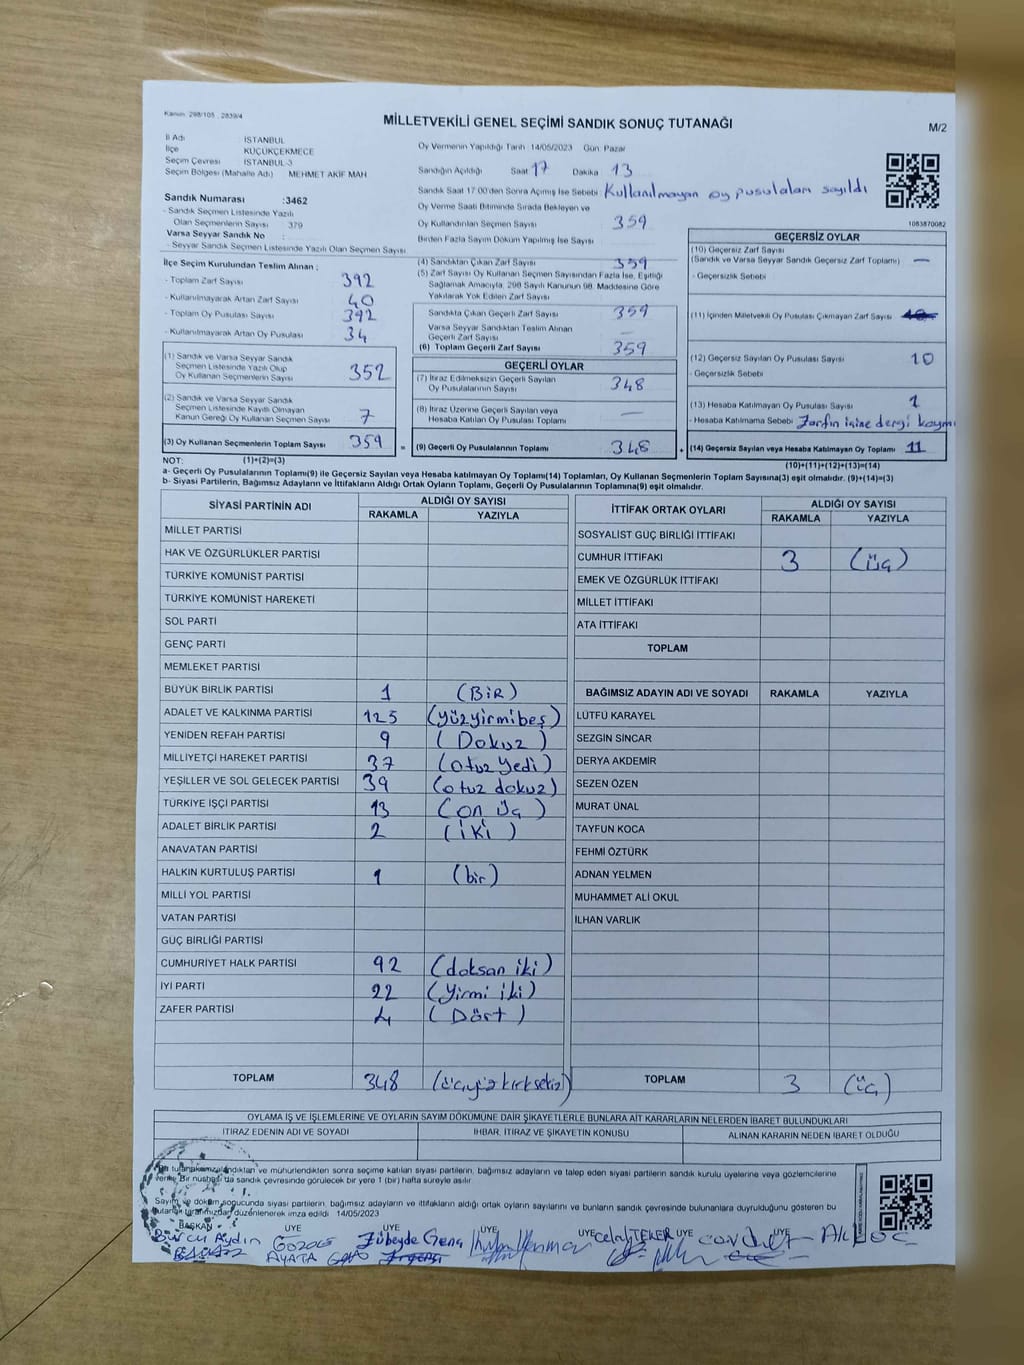 Kanun: 298/105 , 2839/4
MİLLETVEKİLİ GENEL SEÇİMİ SANDIK SONUÇ TUTANAĞI
M/2
İl Adı İSTANBUL
İlçe KÜÇÜKÇEKMECE
Seçim Çevresi İSTANBUL-3
Seçim Bölgesi (Mahalle Adı) MEHMET AKİF MAH
Sandık Numarası :3462
- Sandık Seçmen Listesinde Yazılı
Olan Seçmenlerin Sayısı : 379
Varsa Seyyar Sandık No :
- Seyyar Sandık Seçmen Listesinde Yazılı Olan Seçmen Sayısı
İlçe Seçim Kurulundan Teslim Alınan :
- Toplam Zarf Sayısı 392
- Kullanılmayarak Artan Zarf Sayısı 40
- Toplam Oy Pusulası Sayısı 392
- Kullanılmayarak Artan Oy Pusulası 34
(1) Sandık ve Varsa Seyyar Sandık
Seçmen Listesinde Yazılı Olup
Oy Kullanan Seçmenlerin Sayısı 352
(2) Sandık ve Varsa Seyyar Sandık
Seçmen Listesinde Kayıtlı Olmayan
Kanun Gereği Oy Kullanan Seçmen Sayısı 7
(3) Oy Kullanan Seçmenlerin Toplam Sayısı 359
Oy Vermenin Yapıldığı Tarih :14/05/2023 Gün: Pazar
Sandığın Açıldığı Saat 17 Dakika 13
Sandık Saat 17:00'den Sonra Açılmış İse Sebebi: Kullanılmayan oy pusulaları sayıldı
Oy Verme Saati Bitiminde Sırada Bekleyen ve
Oy Kullandırılan Seçmen Sayısı 359
Birden Fazla Sayım Döküm Yapılmış İse Sayısı
(4) Sandıktan Çıkan Zarf Sayısı 359
(5) Zarf Sayısı Oy Kullanan Seçmen Sayısından Fazla İse, Eşitliği
Sağlamak Amacıyla, 298 Sayılı Kanunun 98. Maddesine Göre
Yakılarak Yok Edilen Zarf Sayısı
Sandıkta Çıkan Geçerli Zarf Sayısı 359
Varsa Seyyar Sandıktan Teslim Alınan
Geçerli Zarf Sayısı —
(6) Toplam Geçerli Zarf Sayısı 359
GEÇERLİ OYLAR
(7) İtiraz Edilmeksizin Geçerli Sayılan
Oy Pusulalarının Sayısı 348
(8) İtiraz Üzerine Geçerli Sayılan veya
Hesaba Katılan Oy Pusulası Toplamı —
= (9) Geçerli Oy Pusulalarının Toplamı 348
1083870082
GEÇERSİZ OYLAR
(10) Geçersiz Zarf Sayısı
(Sandık ve Varsa Seyyar Sandık Geçersiz Zarf Toplamı) —
- Geçersizlik Sebebi
(11) İçinden Milletvekili Oy Pusulası Çıkmayan Zarf Sayısı
(12) Geçersiz Sayılan Oy Pusulası Sayısı 10
- Geçersizlik Sebebi
(13) Hesaba Katılmayan Oy Pusulası Sayısı 1
- Hesaba Katılmama Sebebi Zarfın içine dergi
+ (14) Geçersiz Sayılan veya Hesaba Katılmayan Oy Toplamı 11
NOT: (1)+(2)=(3)
(10)+(11)+(12)+(13)=(14)
a- Geçerli Oy Pusulalarının Toplamı(9) ile Geçersiz Sayılan veya Hesaba katılmayan Oy Toplamı(14) Toplamları, Oy Kullanan Seçmenlerin Toplam Sayısına(3) eşit olmalıdır. (9)+(14)=(3)
b- Siyasi Partilerin, Bağımsız Adayların ve İttifakların Aldığı Ortak Oyların Toplamı, Geçerli Oy Pusulalarının Toplamına(9) eşit olmalıdır.
SİYASİ PARTİNİN ADI ALDIĞI OY SAYISI
RAKAMLA YAZIYLA
MİLLET PARTİSİ
HAK VE ÖZGÜRLÜKLER PARTİSİ
TÜRKİYE KOMÜNİST PARTİSİ
TÜRKİYE KOMÜNİST HAREKETİ
SOL PARTİ
GENÇ PARTİ
MEMLEKET PARTİSİ
BÜYÜK BİRLİK PARTİSİ 1 (BİR)
ADALET VE KALKINMA PARTİSİ 125 (yüzyirmibeş)
YENİDEN REFAH PARTİSİ 9 (Dokuz)
MİLLİYETÇİ HAREKET PARTİSİ 37 (otuz yedi)
YEŞİLLER VE SOL GELECEK PARTİSİ 39 (otuz dokuz)
TÜRKİYE İŞÇİ PARTİSİ 13 (on üç)
ADALET BİRLİK PARTİSİ 2 (İKİ)
ANAVATAN PARTİSİ
HALKIN KURTULUŞ PARTİSİ 1 (bir)
MİLLİ YOL PARTİSİ
VATAN PARTİSİ
GÜÇ BİRLİĞİ PARTİSİ
CUMHURİYET HALK PARTİSİ 92 (doksan iki)
İYİ PARTİ 22 (Yirmi iki)
ZAFER PARTİSİ 4 (Dört)
TOPLAM 348 (üçyüz kırksekiz)
İTTİFAK ORTAK OYLARI ALDIĞI OY SAYISI
RAKAMLA YAZIYLA
SOSYALİST GÜÇ BİRLİĞİ İTTİFAKI
CUMHUR İTTİFAKI 3 (üç)
EMEK VE ÖZGÜRLÜK İTTİFAKI
MİLLET İTTİFAKI
ATA İTTİFAKI
TOPLAM
BAĞIMSIZ ADAYIN ADI VE SOYADI RAKAMLA YAZIYLA
LÜTFÜ KARAYEL
SEZGİN SİNCAR
DERYA AKDEMİR
SEZEN ÖZEN
MURAT ÜNAL
TAYFUN KOCA
FEHMİ ÖZTÜRK
ADNAN YELMEN
MUHAMMET ALİ OKUL
İLHAN VARLIK
TOPLAM 3 (üç)
OYLAMA İŞ VE İŞLEMLERİNE VE OYLARIN SAYIM DÖKÜMÜNE DAİR ŞİKAYETLERLE BUNLARA AİT KARARLARIN NELERDEN İBARET BULUNDUKLARI
İTİRAZ EDENİN ADI VE SOYADI İHBAR, İTİRAZ VE ŞİKAYETİN KONUSU ALINAN KARARIN NEDEN İBARET OLDUĞU
tutanak imzalandıktan ve mühürlendikten sonra seçime katılan siyasi partilerin, bağımsız adayların ve talep eden siyasi partilerin sandık kurulu üyelerine veya gözlemcilerine
verilir. Bir nüshası da sandık çevresinde görülecek bir yere 1 (bir) hafta süreyle asılır.
Sayım ve döküm sonucunda siyasi partilerin, bağımsız adayların ve ittifakların aldığı ortak oyların sayıları ve bunların sandık çevresinde bulunanlara duyrulduğunu gösteren bu
tutanak tarafımızdan düzenlenerek imza edildi. 14/05/2023
BAŞKAN ÜYE ÜYE ÜYE ÜYE ÜYE ÜYE
Burcu Aydın Zübeyde Genç TEKER
AYATA